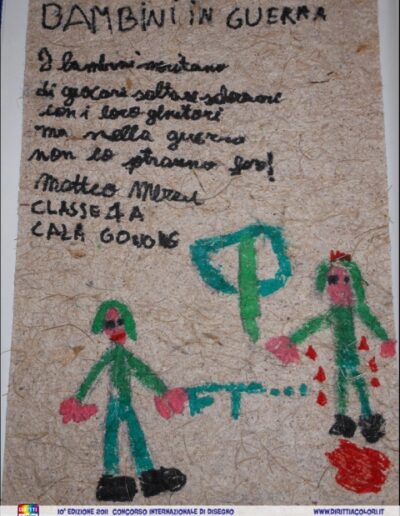 BAMBINI IN GUERRA
I bambini meritano
di giocare saltare
con i loro genitori
ma nella guerra
non lo potranno fare!
Matteo Mereu
CLASSE 4 A
CALA GONONE
10° EDIZIONE 2011 CONCORSO INTERNAZIONALE DI DISEGNO
WWW.DIRITTIACOLORI.IT